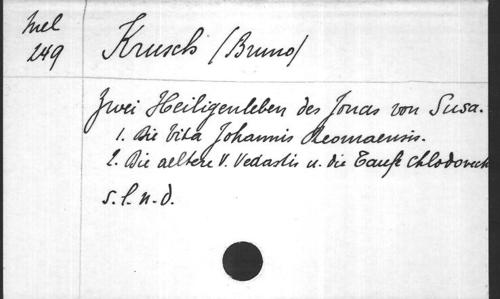 Mel
249
Krusch (Bruno)
Zwei Heiligenleben des Jonas von Susa.
1. Die Vita Johannis Reomaensis.
2. Die aeltere V. Vedastis u. die Taufe Chlodovech
s.l.n.d.